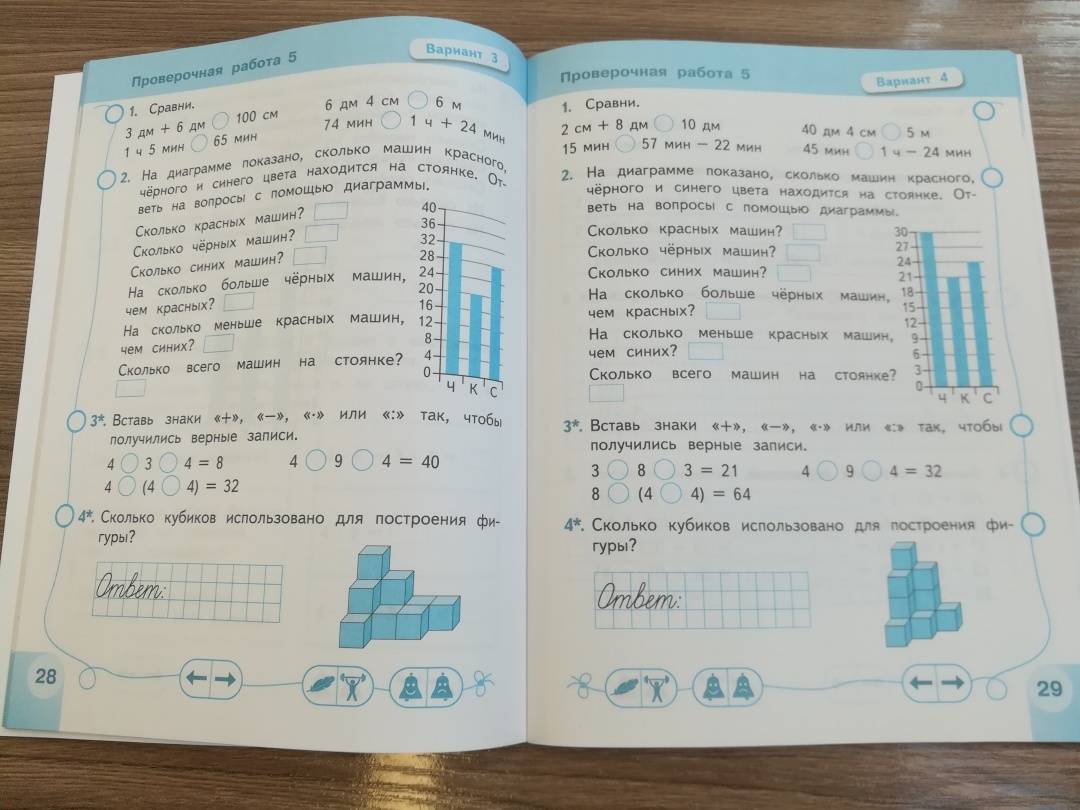 Проверочная работа 5
Вариант 3
1. Сравни.
3 дм + 6 дм ◯ 100 см
6 дм 4 см ◯ 6 м
1 ч 5 мин ◯ 65 мин
74 мин ◯ 1 ч + 24 мин
2. На диаграмме показано, сколько машин красного,
чёрного и синего цвета находится на стоянке. От-
веть на вопросы с помощью диаграммы.
Сколько красных машин?
Сколько чёрных машин?
Сколько синих машин?
На сколько больше чёрных машин,
чем красных?
На сколько меньше красных машин,
чем синих?
Сколько всего машин на стоянке?
40
36
32
28
24
20
16
12
8
4
0
Ч К С
3*. Вставь знаки «+», «—», «·» или «:» так, чтобы
получились верные записи.
4 ◯ 3 ◯ 4 = 8
4 ◯ 9 ◯ 4 = 40
4 ◯ (4 ◯ 4) = 32
4*. Сколько кубиков использовано для построения фи-
гуры?
Ответ:
28
Проверочная работа 5
Вариант 4
1. Сравни.
2 см + 8 дм ◯ 10 дм
40 дм 4 см ◯ 5 м
15 мин ◯ 57 мин — 22 мин
45 мин ◯ 1 ч — 24 мин
2. На диаграмме показано, сколько машин красного,
чёрного и синего цвета находится на стоянке. От-
веть на вопросы с помощью диаграммы.
Сколько красных машин?
Сколько чёрных машин?
Сколько синих машин?
На сколько больше чёрных машин,
чем красных?
На сколько меньше красных машин,
чем синих?
Сколько всего машин на стоянке?
30
27
24
21
18
15
12
9
6
3
0
Ч К С
3*. Вставь знаки «+», «—», «·» или «:» так, чтобы
получились верные записи.
3 ◯ 8 ◯ 3 = 21
4 ◯ 9 ◯ 4 = 32
8 ◯ (4 ◯ 4) = 64
4*. Сколько кубиков использовано для построения фи-
гуры?
Ответ:
29